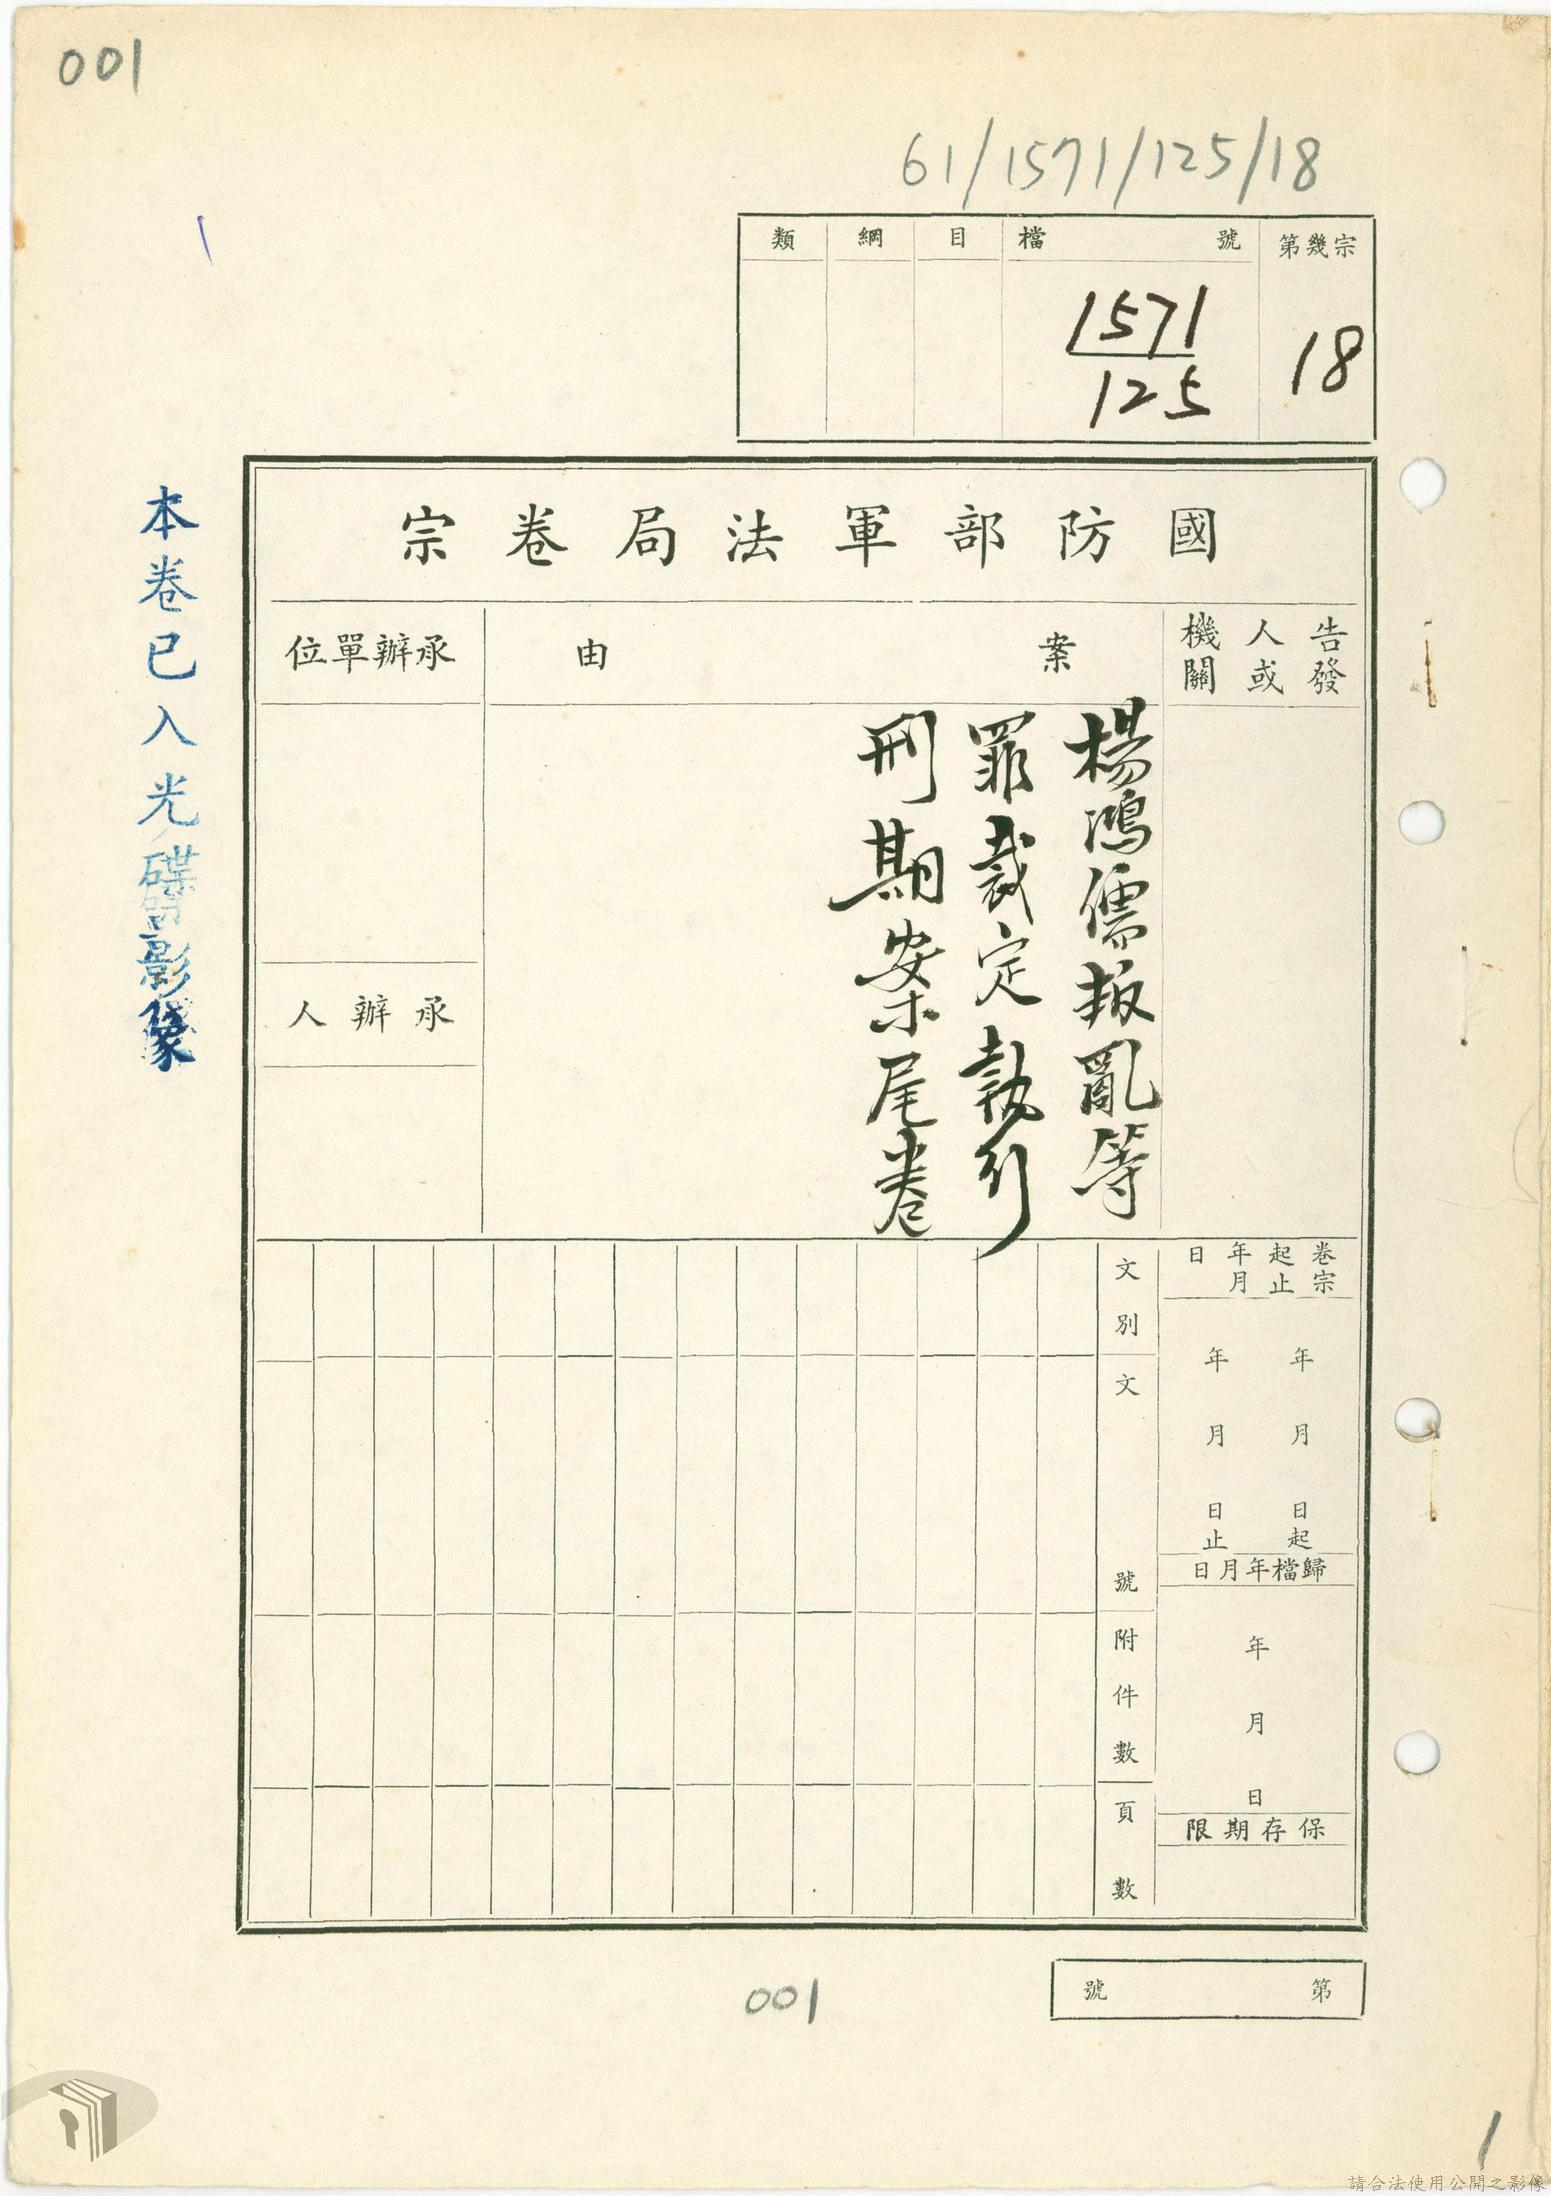 001
61/1571/125/18
類 綱 目 檔號 第幾宗
1571
125
18
國防部軍法局卷宗
告發人或機關
案由
承辦單位
楊鴻儒叛亂等
罪裁定執行
刑期案尾卷
承辦人
本卷已入光碟影像
卷宗起止年月日
年月日起
年月日止
歸檔年月日
年月日
保存期限
文別
文號
附件數
頁數
第號
001
1
請合法使用公開之影像